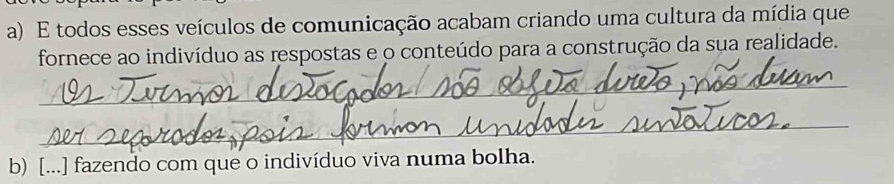 a) E todos esses veículos de comunicação acabam criando uma cultura da mídia que
fornece ao indivíduo as respostas e o conteúdo para a construção da sua realidade.
Os Termos destacados são objeto direto, não devem
ser separados, pois formam unidades sintáticas.
b) [...] fazendo com que o indivíduo viva numa bolha.